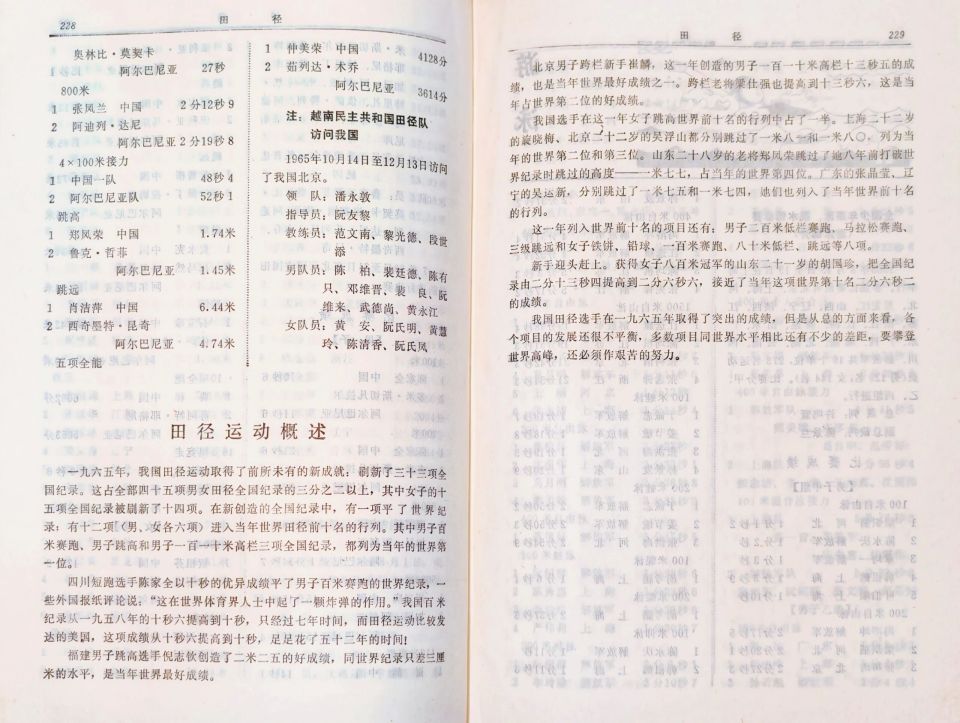 228
田 径
奥林比·莫契卡
阿尔巴尼亚 27秒
800米
1 张凤兰 中国 2分12秒9
2 阿迪列·达尼
阿尔巴尼亚 2分19秒8
4×100米接力
1 中国一队 48秒4
2 阿尔巴尼亚队 52秒1
跳高
1 郑凤荣 中国 1.74米
2 鲁克·哲菲
阿尔巴尼亚 1.45米
跳远
1 肖洁萍 中国 6.44米
2 西奇墨特·昆奇
阿尔巴尼亚 4.74米
五项全能
1 仲美荣 中国 4128分
2 茹列达·术乔
阿尔巴尼亚 3614分
注：越南民主共和国田径队
访问我国
1965年10月14日至12月13日访问
了我国北京。
领 队：潘永敦
指导员：阮友黎
教练员：范文南、黎光德、段世
添
男队员：陈 柏、裴廷德、陈有
只、邓维晋、裴 良、阮
维来、武德尚、黄永江
女队员：黄 安、阮氏明、黄慧
玲、陈清香、阮氏凤
田径运动概述
一九六五年，我国田径运动取得了前所未有的新成就：刷新了三十三项全
国纪录。这占全部四十五项男女田径全国纪录的三分之二以上，其中女子的十
五项全国纪录被刷新了十四项。在新创造的全国纪录中，有一项平了世界纪
录；有十二项（男、女各六项）进入当年世界田径前十名的行列。其中男子百
米赛跑、男子跳高和男子一百一十米高栏三项全国纪录，都列为当年的世界第
一位。
四川短跑选手陈家全以十秒的优异成绩平了男子百米赛跑的世界纪录，一
些外国报纸评论说：“这在世界体育界人士中起了一颗炸弹的作用。”我国百米
纪录从一九五八年的十秒六提高到十秒，只经过七年时间，而田径运动比较发
达的美国，这项成绩从十秒六提高到十秒，足足花了五十二年的时间！
福建男子跳高选手倪志钦创造了二米二五的好成绩，同世界纪录只差三厘
米的水平，是当年世界最好成绩。
田 径
229
北京男子跨栏新手崔麟，这一年创造的男子一百一十米高栏十三秒五的成
绩，也是当年世界最好成绩之一。跨栏老将梁仕强也提高到十三秒六，这是当
年占世界第二位的好成绩。
我国选手在这一年女子跳高世界前十名的行列中占了一半。上海二十二岁
的漩晓梅、北京二十二岁的吴浮山都分别跳过了一米八一和一米八〇，列为当
年的世界第二位和第三位。山东二十八岁的老将郑凤荣跳过了她八年前打破世
界纪录时跳过的高度———一米七七，占当年的世界第四位。广东的张晶莹、辽
宁的吴运新，分别跳过了一米七五和一米七四，她们也列入了当年世界前十名
的行列。
这一年列入世界前十名的项目还有：男子二百米低栏赛跑、马拉松赛跑、
三级跳远和女子铁饼、铅球、一百米赛跑、八十米低栏、跳远等八项。
新手迎头赶上。获得女子八百米冠军的山东二十一岁的胡国珍，把全国纪
录由二分十三秒四提高到二分六秒六，接近了当年这项世界第十名二分六秒二
的成绩。
我国田径选手在一九六五年取得了突出的成绩，但是从总的方面来看，各
个项目的发展还很不平衡，多数项目同世界水平相比还有不少的差距，要攀登
世界高峰，还必须作艰苦的努力。